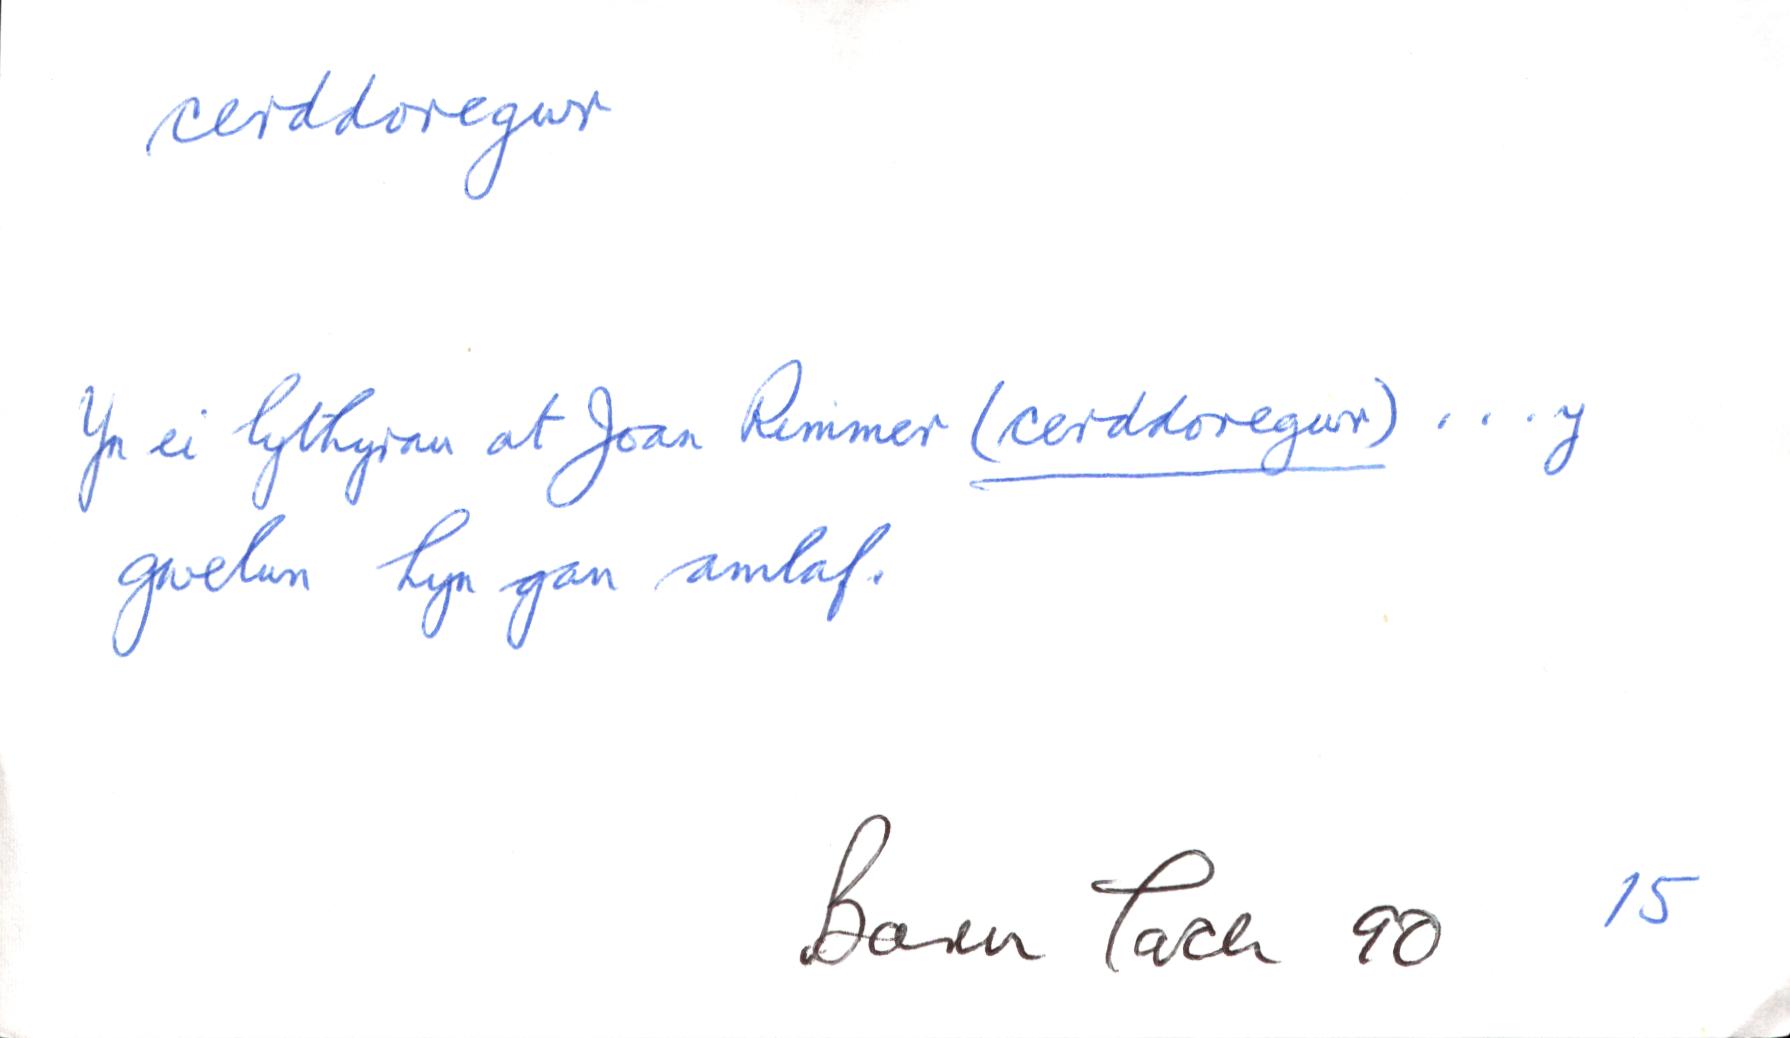 cerddoregwr
Yn ei lythyrau at Joan Rimmer (cerddoregwr) .... y
gwelwn hyn gan amlaf.
Barn Tach 90 15